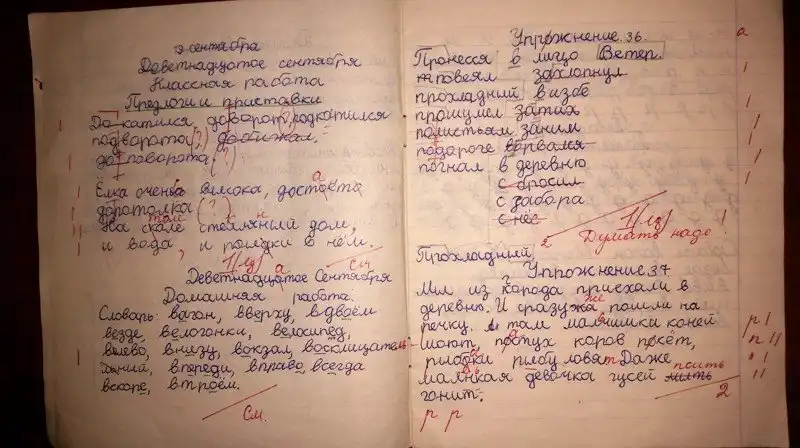 9 сентября
Деветнадцатое сентября
Классная работа
Предлоги и приставки
До катился до ворот, подкатился
под ворота (?) добижал,
до поворота (?)
Ёлка очень высока, достаёт а
до потолка (?)
На столе стеклянный дом,
и вода, и рыбки в нём.
1/1д
См
Деветнадцатое Сентября
Домашняя работа.
Словарь: вагон, вверху, вдвоём
везде, велогонки, велосипед,
влево, внизу, вокзал, восклицатель-
ный, впереди, вправо, всегда
вскоре, втроём.
См.
Упрожнение. 36. а
Пронесся в лицо Ветер.
повеял захлопнул
прохладный в избе
прошумел затих
по листьям за ним
по дароге ворвался
погнал в деревню
с бросил
с забора
с нёс
2 Думать надо!
Прохладный,
Упрожнение. 37
Мы из города приехали в
деревню. И сразу же пошли на
речку. А там мальчишки коней
пасут коров
рыбу ловят. Даже
маленкая девочка гусей поить
гонит. 2
р р